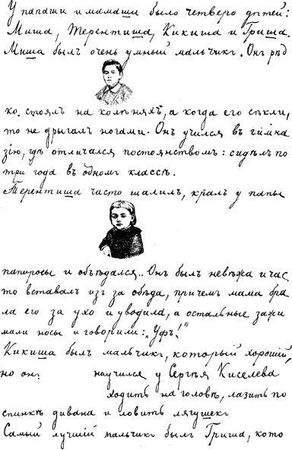 У папаши и мамаши было четверо дѣтей:
Миша, Терентиша, Кикиша и Гриша.
Миша былъ очень умный мальчикъ. Онъ рѣд
ко стоялъ на колѣняхъ, а когда его сѣкли,
то не дрыгалъ ногами. Онъ учился въ гимна
зію, гдѣ отличался постоянствомъ: сидѣлъ по
три года въ одномъ классѣ.
Терентиша часто шалилъ, кралъ у папы
папиросы и объѣдался.. Онъ былъ невѣжа и час
то вставалъ изъ за обѣда, причемъ мама бра
ла его за ухо и уводила, а остальные зажи
мали носы и говорили: „Уфъ!"
Кикиша былъ мальчикъ, который хорошій,
но онъ научился у Сергѣя Киселева
ходить на головѣ, лазить по
спинкѣ дивана и ловить лягушекъ
Самый лучшій мальчикъ былъ Гриша, кото